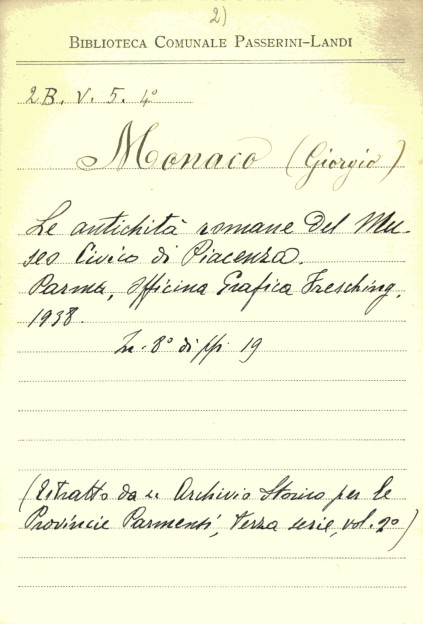 2)
BIBLIOTECA COMUNALE PASSERINI-LANDI
2B. V. 5. 4°
Monaco (Giorgio)
Le antichità romane del Mu-
seo Civico di Piacenza.
Parma, Officina Grafica Fresching,
1938.
In-8° di pp. 19
(Estratto da "Archivio Storico per le
Provincie Parmensi", terza serie, vol. 2°)